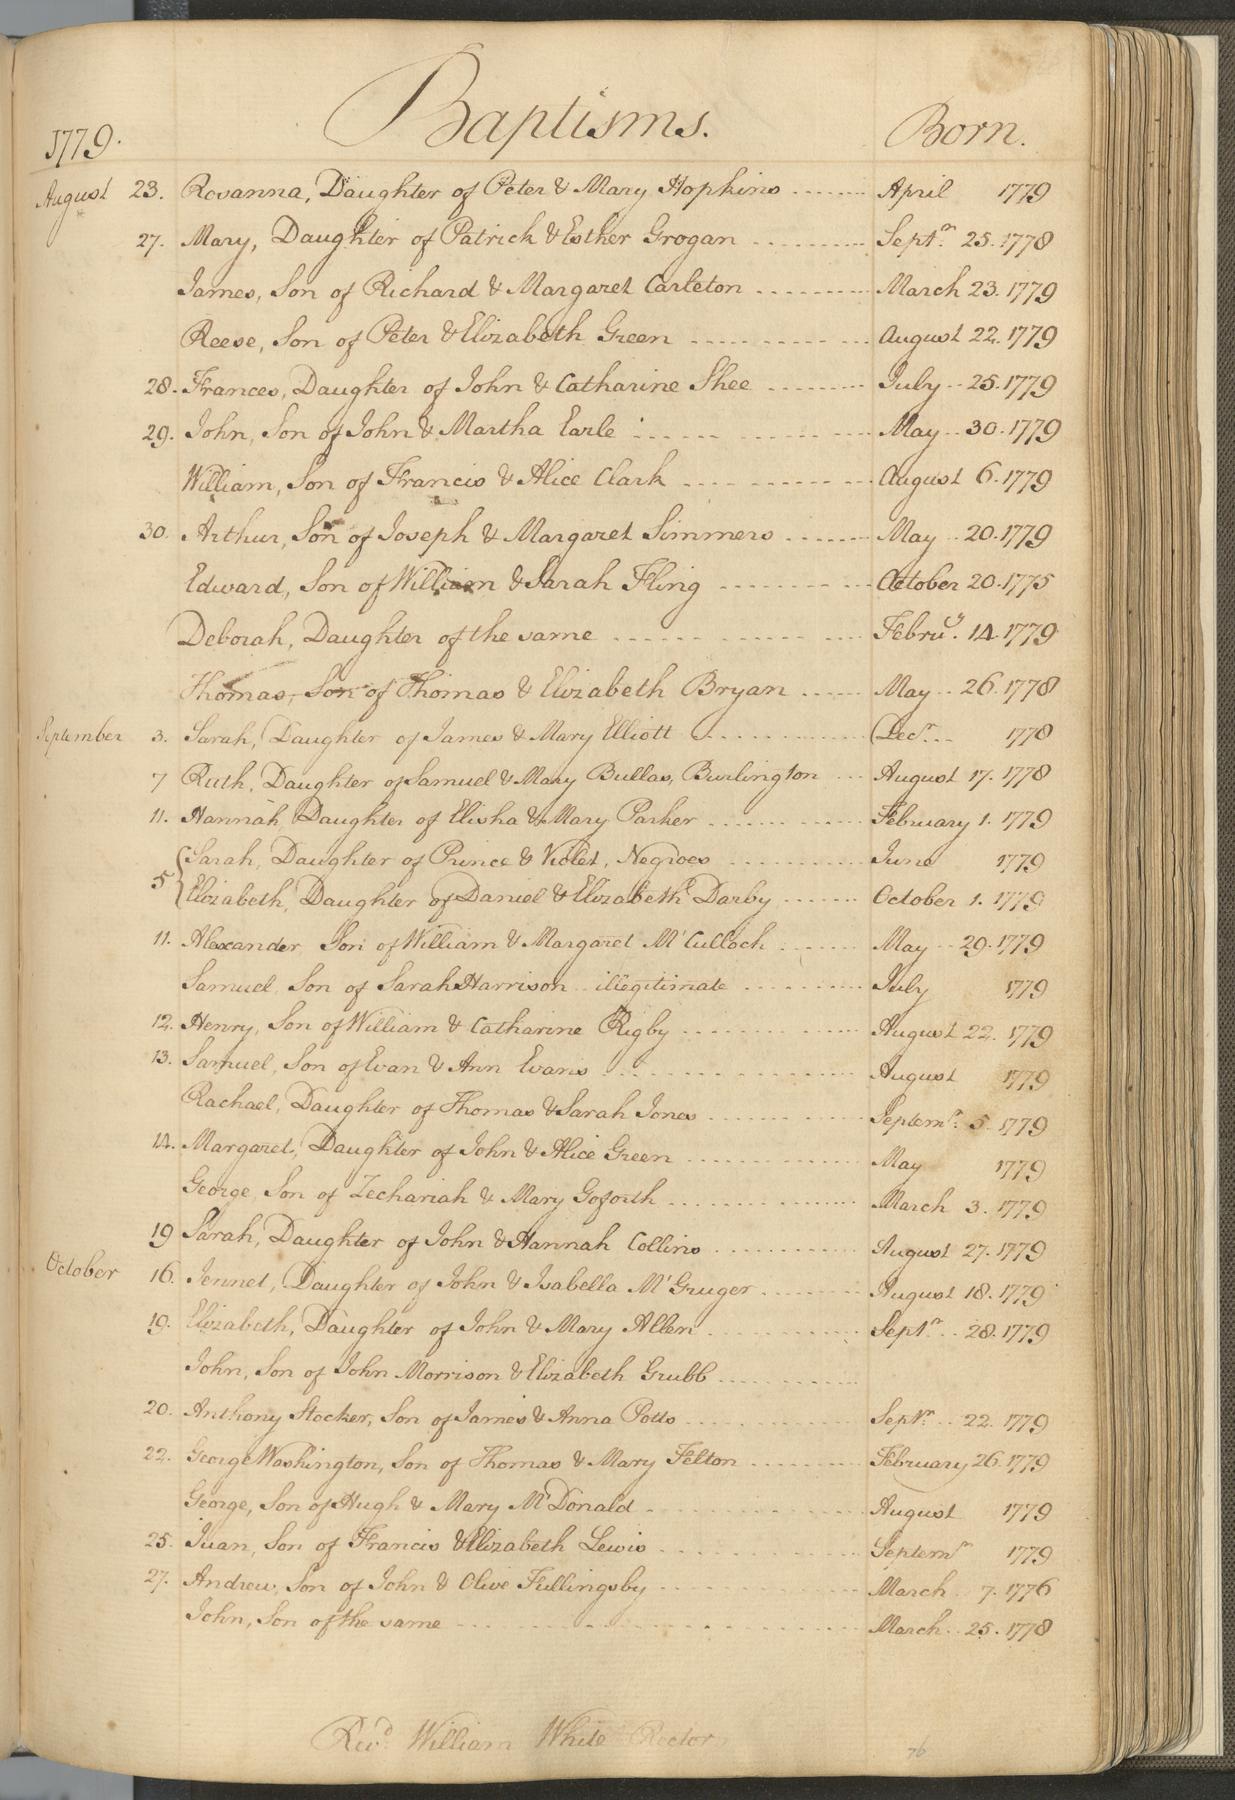 Baptisms. Born.
1779.
August 23. Rosanna, Daughter of Peter & Mary Hopkins ....... April 1779
27. Mary, Daughter of Patrick & Esther Grogan .......... Septr. 25. 1778
James, Son of Richard & Margaret Carleton .......... March 23. 1779
Reese, Son of Peter & Elizabeth Green .............. August 22. 1779
28. Frances, Daughter of John & Catharine Shee .......... July .. 25. 1779
29. John, Son of John & Martha Earle .............. May .. 30. 1779
William, Son of Francis & Alice Clark .............. August 6. 1779
30. Arthur, Son of Joseph & Margaret Simmers ....... May .. 20. 1779
Edward, Son of William & Sarah Fling .............. October 20. 1775
Deborah, Daughter of the same .............. Febru'y. 14. 1779
Thomas, Son of Thomas & Elizabeth Bryan ..... May .. 26. 1778
September 3. Sarah, Daughter of James & Mary Elliott .............. Decr. .. 1778
7 Ruth, Daughter of Samuel & Mary Bullas, Burlington ... August 17. 1778
11. Hannah, Daughter of Elisha & Mary Parker .............. February 1. 1779
5 { Sarah, Daughter of Prince & Violet, Negroes .............. June 1779
Elizabeth, Daughter of Daniel & Elizabeth Darby ....... October 1. 1779
11. Alexander Son of William & Margaret Mc'Culloch ....... May .. 29. 1779
Samuel Son of Sarah Harrison .. illegitimate .......... July 1779
12. Henry, Son of William & Catharine Rigby .............. August 22. 1779
13. Samuel, Son of Evan & Ann Evans .............. August 1779
Rachael, Daughter of Thomas & Sarah Jones .......... Septemr. 5. 1779
14. Margaret, Daughter of John & Alice Green .............. May 1779
George, Son of Zechariah & Mary Goforth .............. March 3. 1779
19 Sarah, Daughter of John & Hannah Collins .......... August 27. 1779
October 16. Jennet, Daughter of John & Isabella Mc'Gruger ....... August 18. 1779
19. Elizabeth, Daughter of John & Mary Allen .............. Septr. .. 28. 1779
John, Son of John Morrison & Elizabeth Grubb ..........
20. Anthony Stocker, Son of James & Anna Potts .............. Septr. .. 22. 1779
22. George Washington, Son of Thomas & Mary Felton .......... February 26. 1779
George, Son of Hugh & Mary McDonald .............. August 1779
25. Juan, Son of Francis & Elizabeth Lewis .............. Septemr 1779
27. Andrew, Son of John & Olive Fullingsby .............. March .. 7. 1776
John, Son of the same .............. March .. 25. 1778
Revd. William White Rector
76